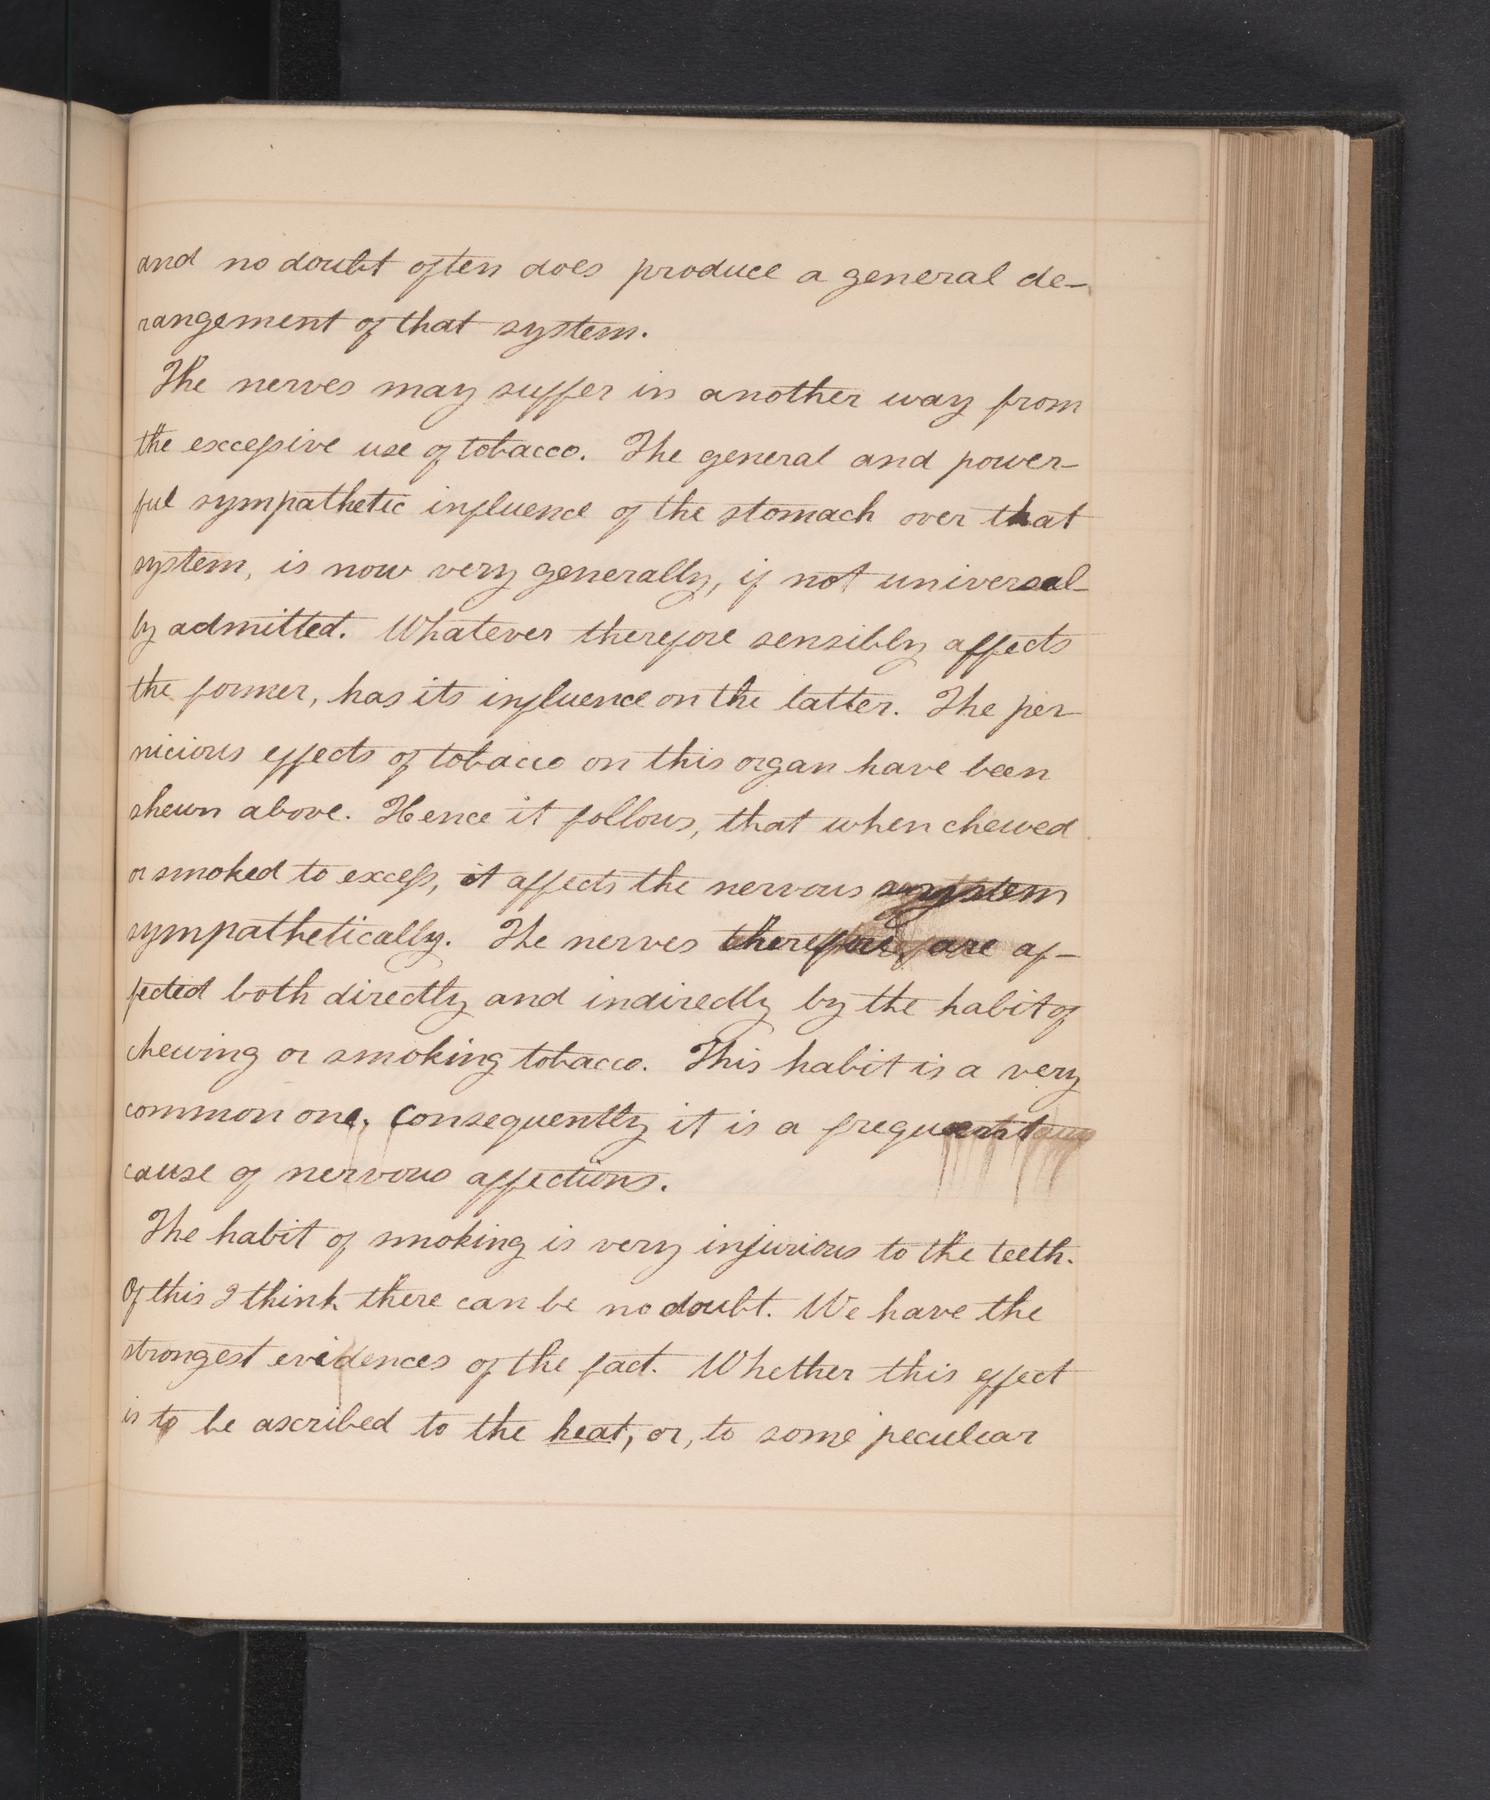 and no doubt often does produce a general de-
rangement of that system.
The nerves may suffer in another way from
the excessive use of tobacco. The general and power-
ful sympathetic influence of the stomach over that
system, is now very generally, if not universal-
ly admitted. Whatever therefore sensibly affects
the former, has its influence on the latter. The per-
nicious effects of tobacco on this organ have been
shewn above. Hence it follows, that when chewed
or smoked to excess, it affects the nervous system
sympathetically. The nerves therefore, are af-
fected both directly and indirectly by the habit of
chewing or smoking tobacco. This habit is a very
common one, consequently it is a frequent
cause of nervous affections.
The habit of smoking is very injurious to the teeth.
Of this I think there can be no doubt. We have the
strongest evidences of the fact. Whether this effect
is to be ascribed to the heat, or, to some peculiar